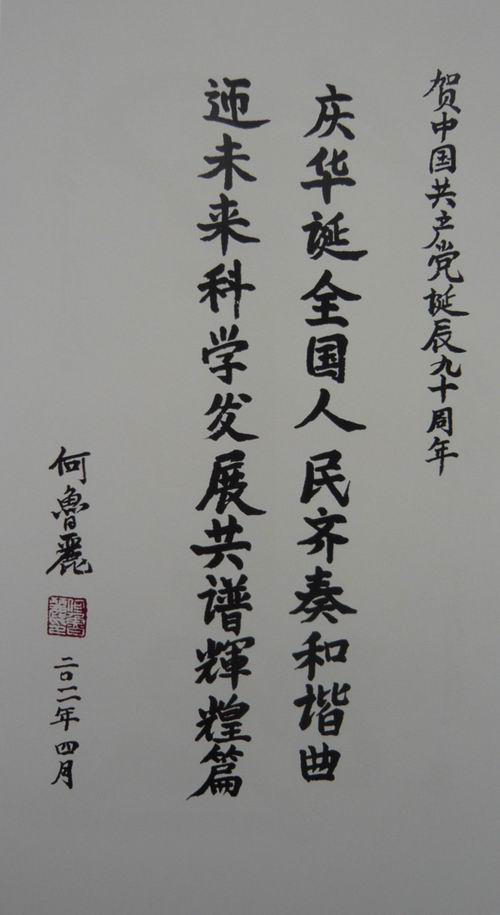 贺中国共产党诞辰九十周年
庆华诞全国人民齐奏和谐曲
迎未来科学发展共谱輝煌篇
何魯麗
二〇一一年四月